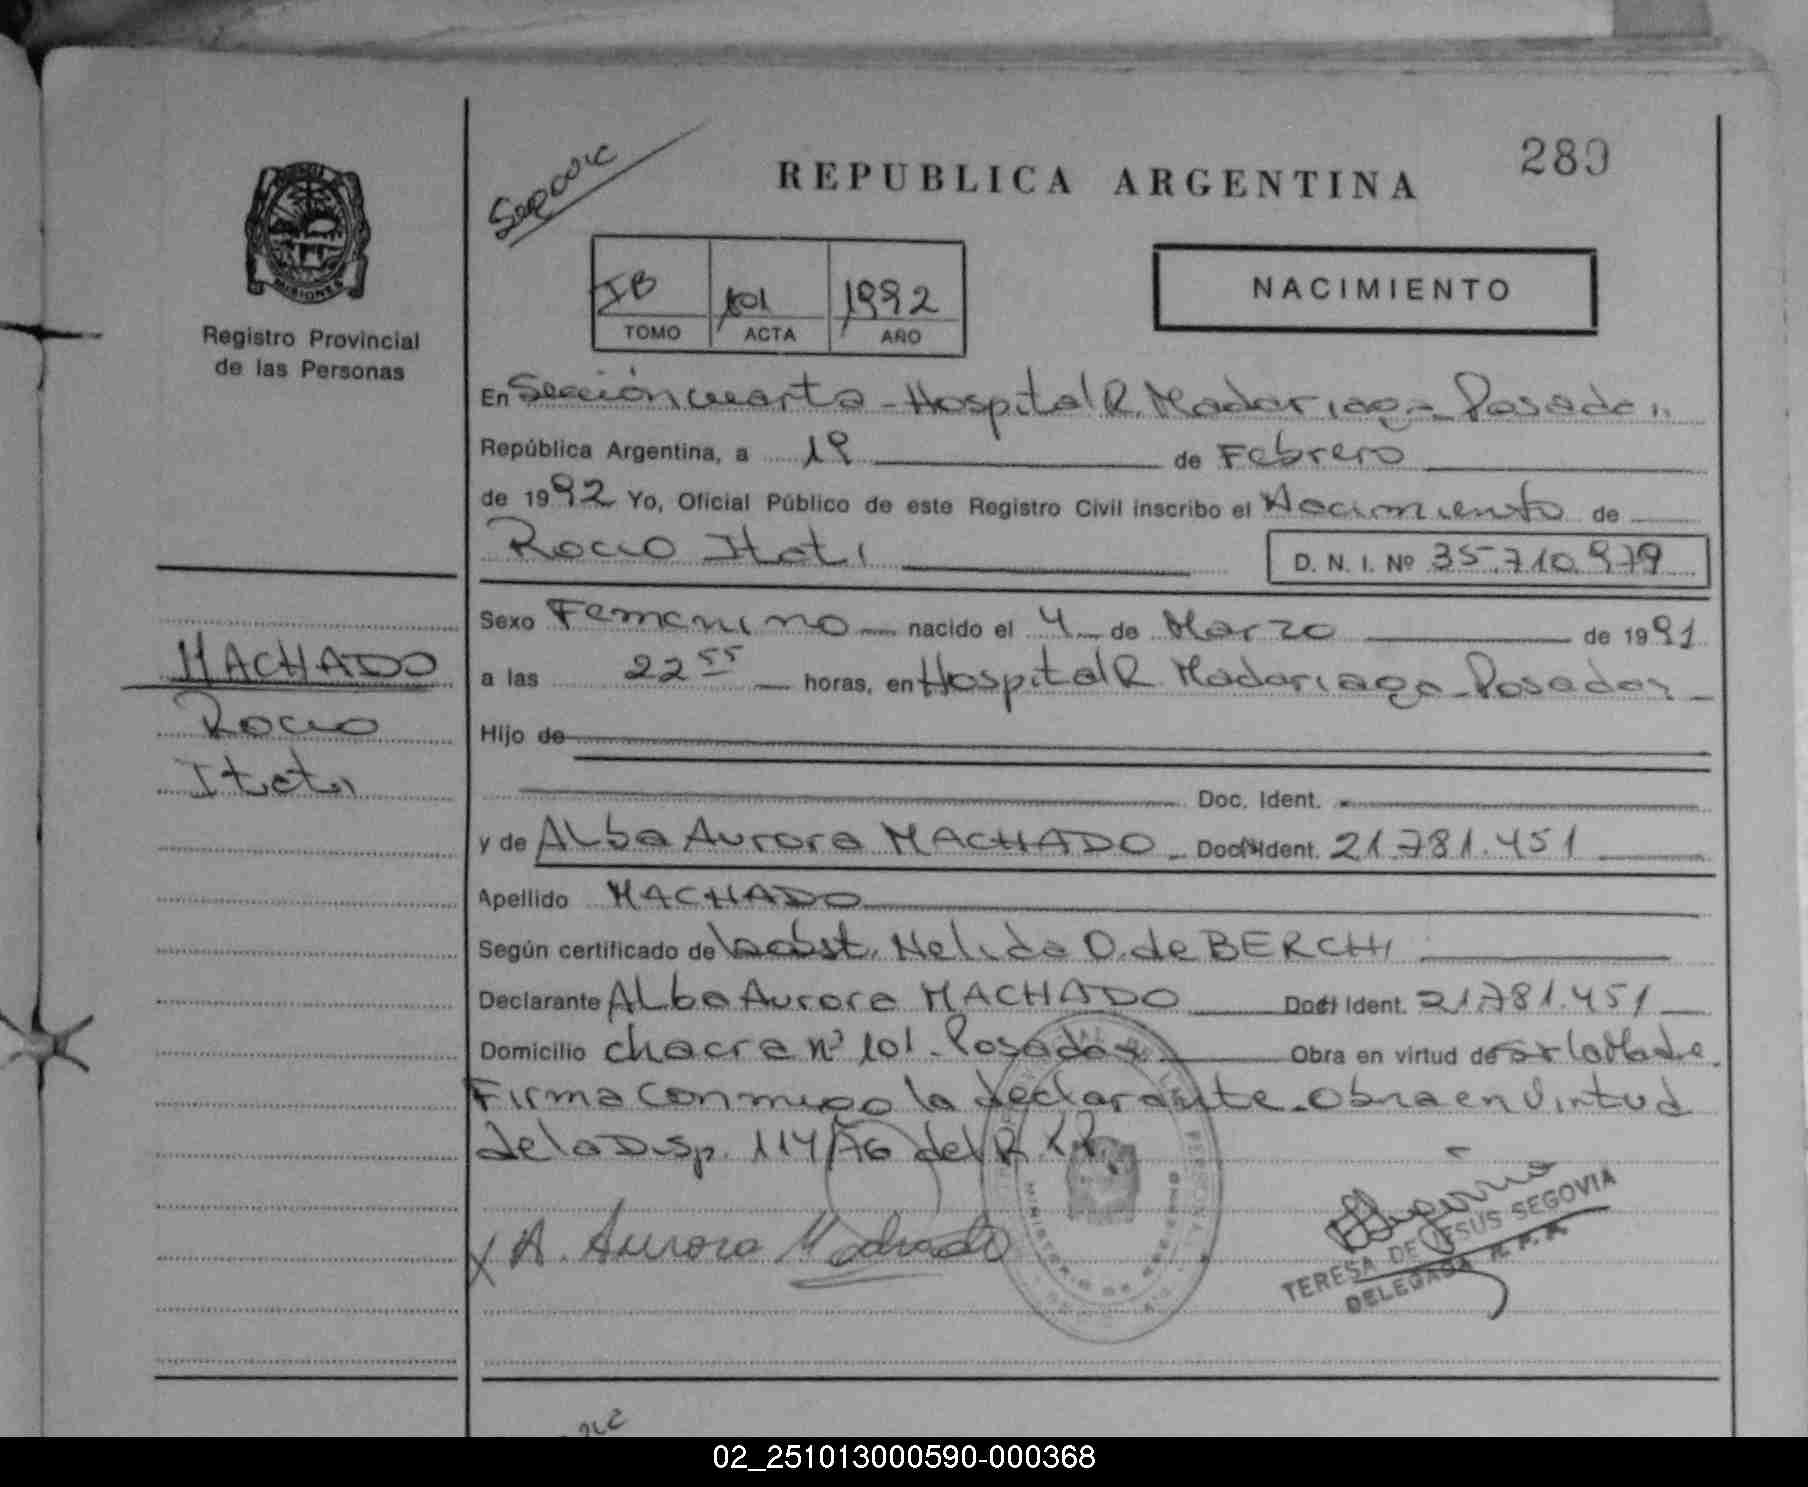 289
REPUBLICA ARGENTINA
MISIONES
Registro Provincial
de las Personas
IB 101 1992
TOMO ACTA AÑO
NACIMIENTO
En Sección cuarta - Hospital R. Madariaga - Posadas
República Argentina, a 19 de Febrero
de 1992 Yo, Oficial Público de este Registro Civil inscribo el Nacimiento de
Rocio Itati
D. N. I. Nº 35.710.979
Sexo Femenino nacido el 4 de Marzo de 1991
a las 22 55 horas, en Hospital R. Madariaga - Posadas -
Hijo de
Doc. Ident.
y de Alba Aurora MACHADO - Doc. Ident. 21.781.451
Apellido MACHADO
Según certificado de la obst. Nelida O. de BERCHI
Declarante Alba Aurora MACHADO Doc. Ident. 21.781.451
Domicilio chacra nº 101 - Posadas Obra en virtud de la Madre
Firma conmigo la declarante - Obra en virtud
de la Disp. 114/76 del R.
X A. Aurora Machado
TERESA DE JESUS SEGOVIA
DELEGADA R. P. P.
MACHADO
Rocio
Itati
02_251013000590-000368